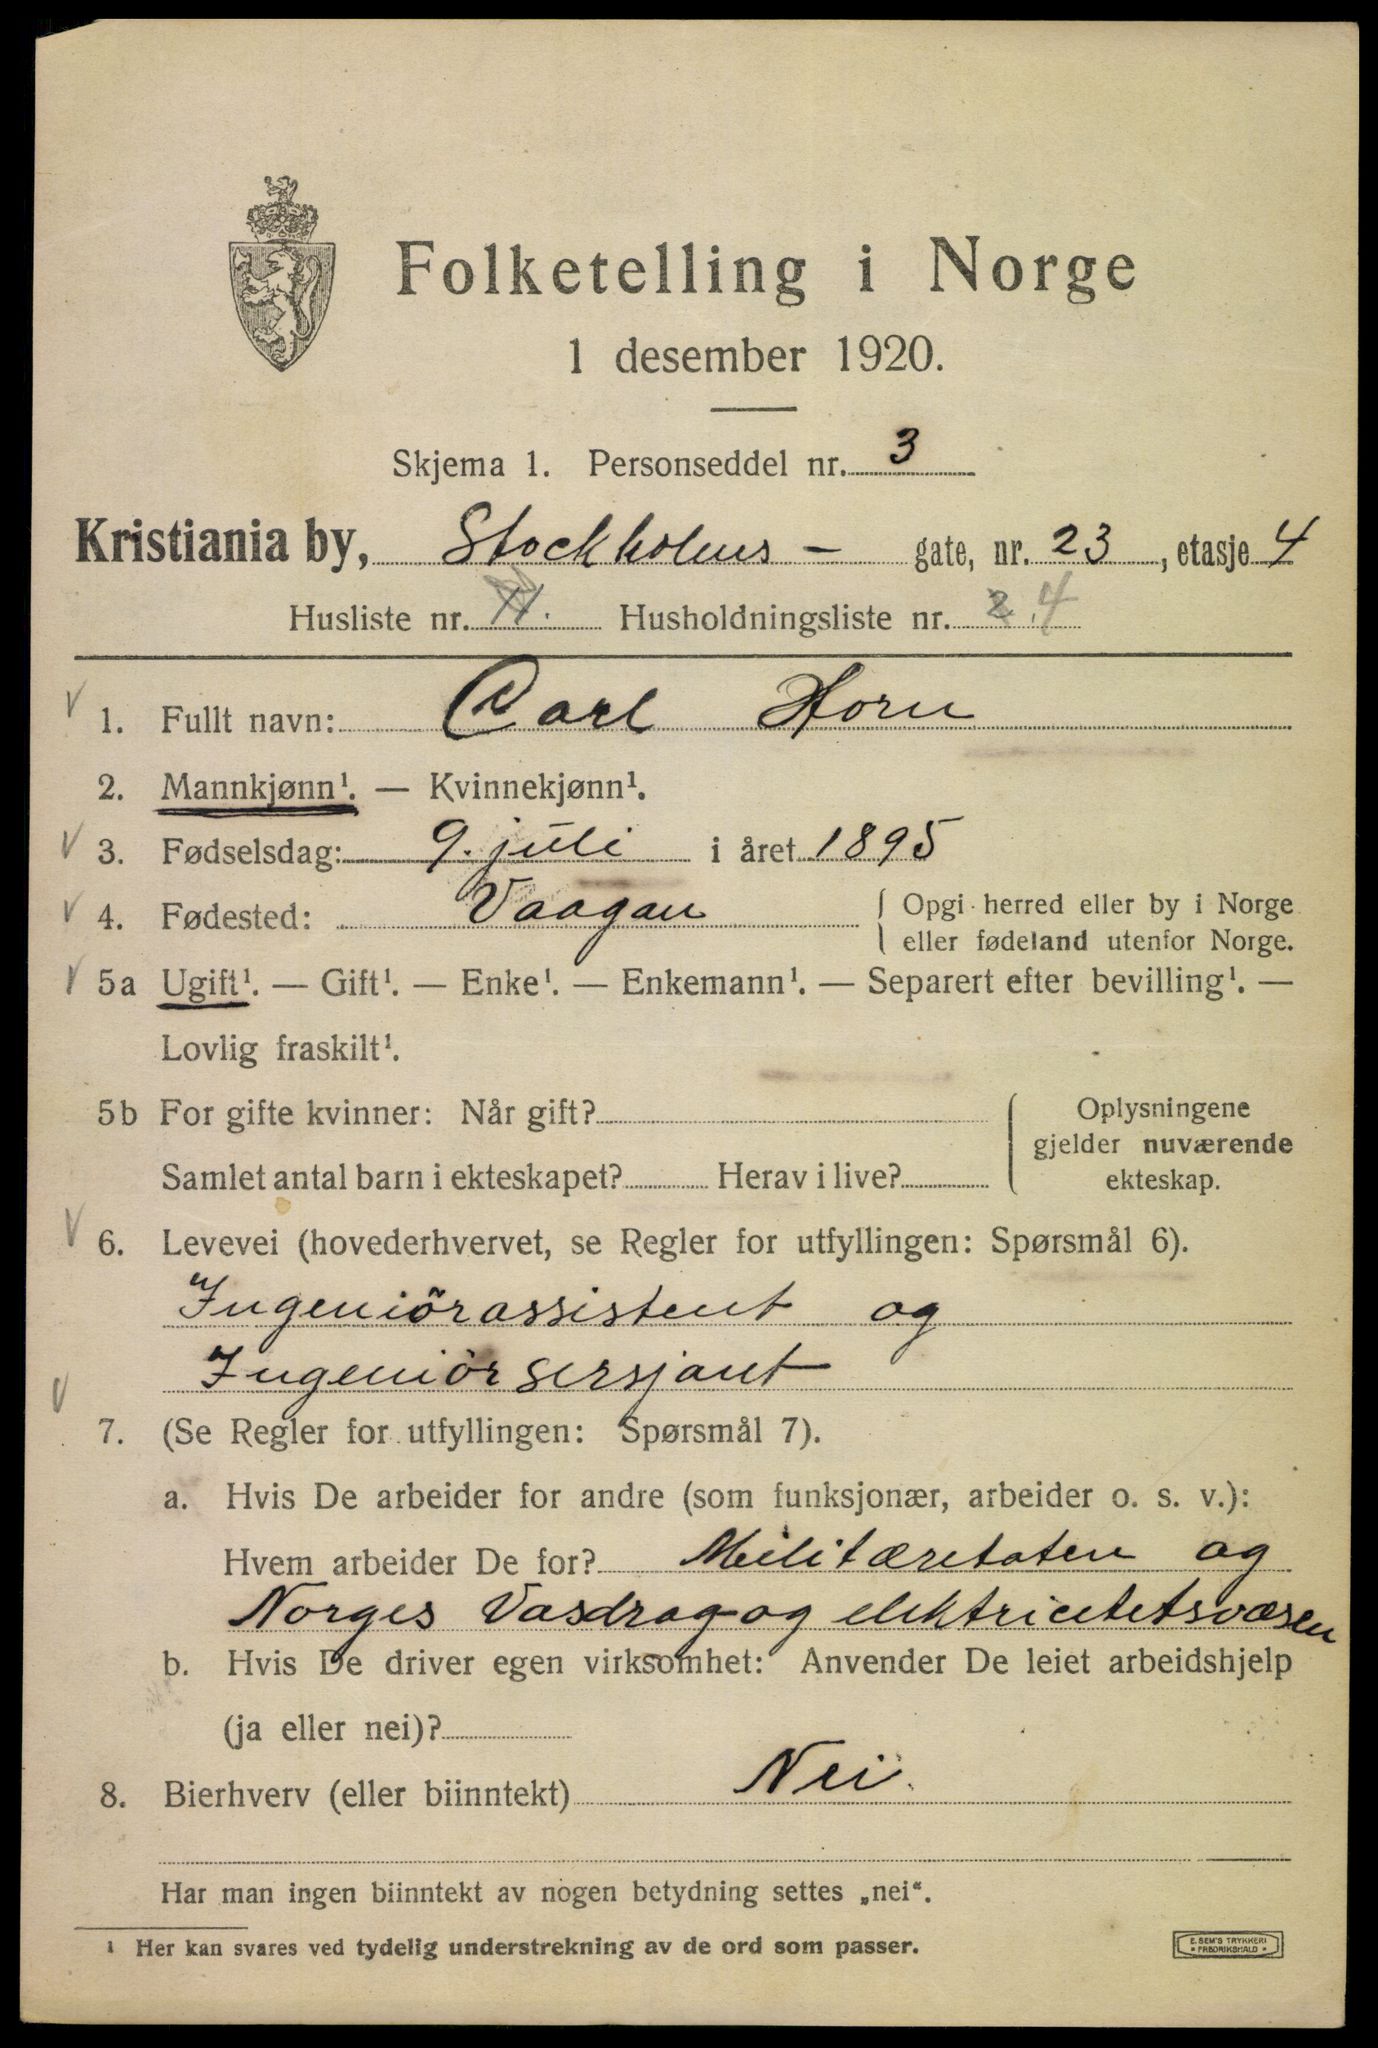 Folketelling i Norge
1 desember 1920.
Skjema 1. Personseddel nr. 3
Kristiania by, Stockholms - gate, nr. 23, etasje 4
Husliste nr. 11. Husholdningsliste nr. 2.4
1. Fullt navn: Carl Horn
2. Mannkjønn¹. — Kvinnekjønn¹.
3. Fødselsdag: 9. juli i året 1895
4. Fødested: Vaagan { Opgi herred eller by i Norge
eller fødeland utenfor Norge.
5a Ugift¹. — Gift¹. — Enke¹. — Enkemann¹. — Separert efter bevilling¹. —
Lovlig fraskilt¹.
5b For gifte kvinner: Når gift? { Oplysningene
gjelder nuværende
Samlet antal barn i ekteskapet? Herav i live? ekteskap.
6. Levevei (hovederhvervet, se Regler for utfyllingen: Spørsmål 6).
Ingeniörassistent og
Ingeniörsersjant
7. (Se Regler for utfyllingen: Spørsmål 7).
a. Hvis De arbeider for andre (som funksjonær, arbeider o. s. v.):
Hvem arbeider De for? Militæretaten og
Norges Vasdrag- og elektricitetsvæsen
b. Hvis De driver egen virksomhet: Anvender De leiet arbeidshjelp
(ja eller nei)?
8. Bierhverv (eller biinntekt) Nei.
Har man ingen biinntekt av nogen betydning settes „nei“.
¹ Her kan svares ved tydelig understrekning av de ord som passer.
E. SEM'S TRYKKERI
• FREDRIKSHALD •